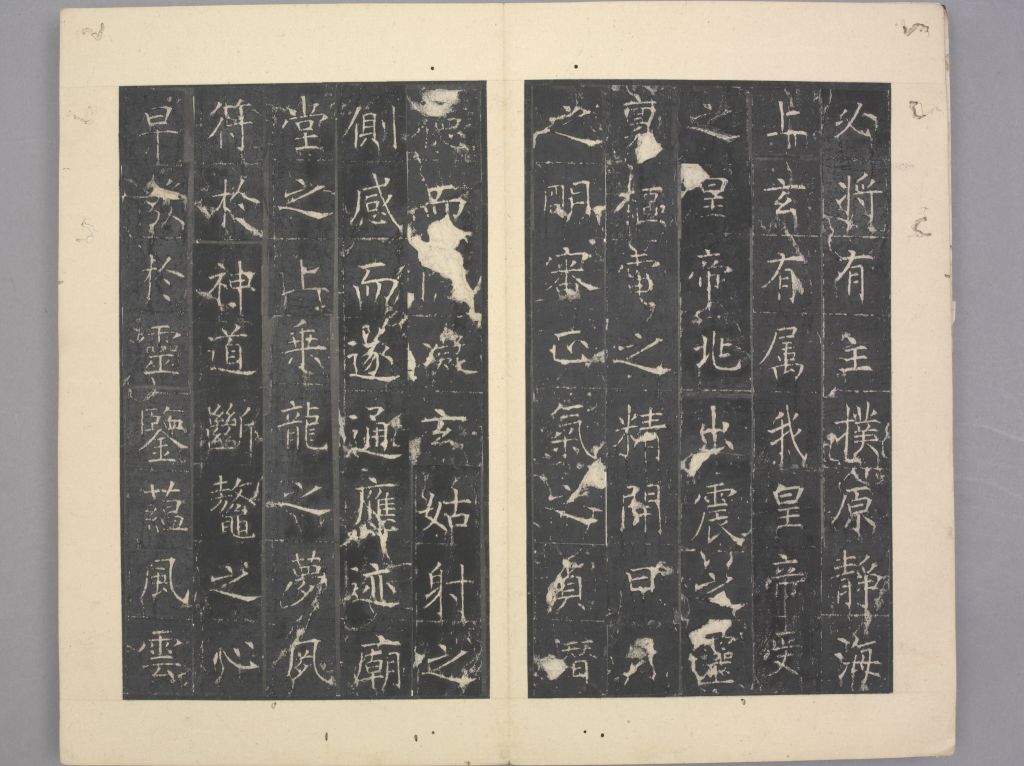 必將有主撲原靜海
上玄有属我皇帝受
之呈帝兆出震之運
樞電之精開日月
之明審正氣之貞潛
而凝玄姑射之
側感而遂通應迹廟
堂之上乗龍之夢夙
符於神道斷鼇之心
早發於靈鑒蘊風雲